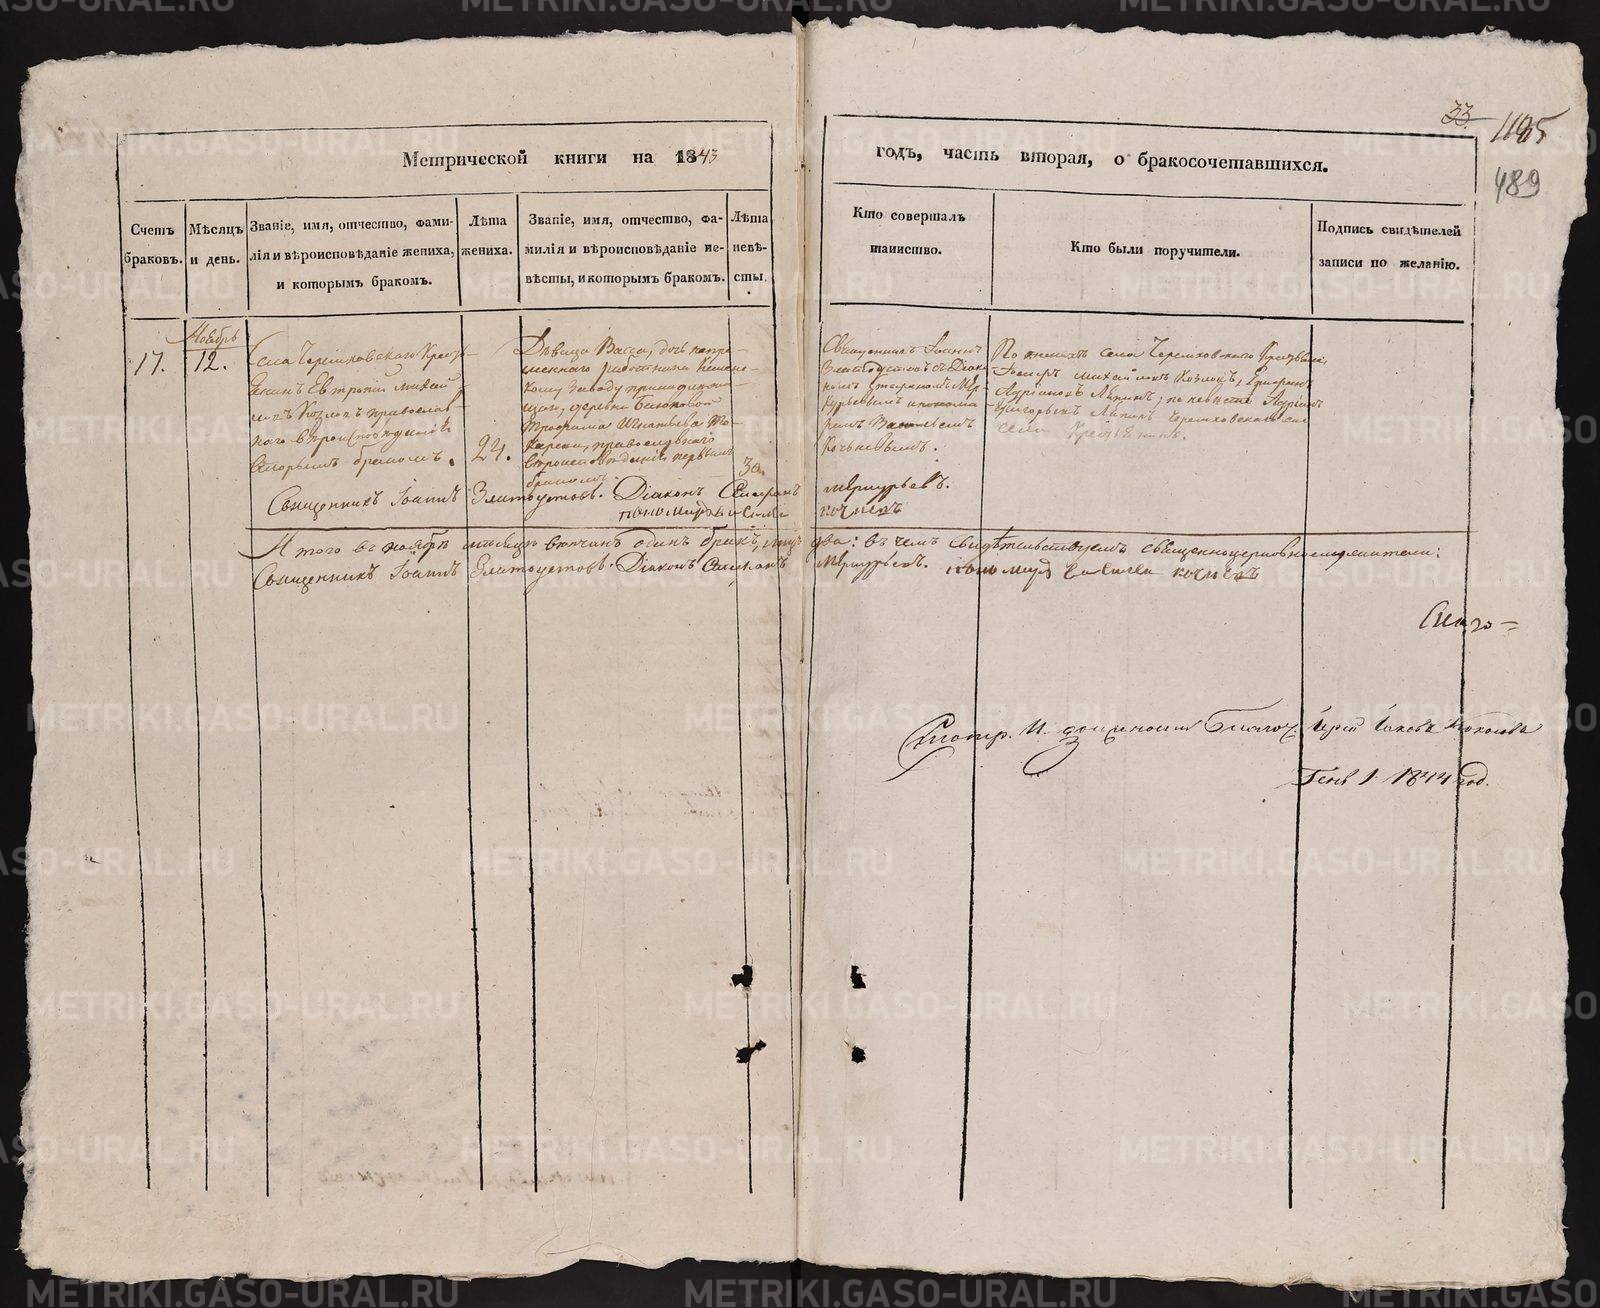 33
1185
489
Метрической книги на 1843
годъ, часть вторая, о бракосочетавшихся.
Счетъ браковъ.
Мѣсяцъ и день.
Званіе, имя, отчество, фами-
лія и вѣроисповѣданіе жениха,
и которымъ бракомъ.
Лѣта жениха.
Званіе, имя, отчество, фа-
милія и вѣроисповѣданіе не-
вѣсты, и которымъ бракомъ.
Лѣта невѣ-
сты.
Кто совершалъ
таинство.
Кто были поручители.
Подпись свидѣтелей
записи по желанію.
17.
Ноябрь
12.
Села Черемховскаго Кресть-
янинъ Евтропій Михай-
ловъ Козловъ православ-
наго вѣроисповѣданія
вторымъ бракомъ.
24.
Дѣвица Васса, дочь непре-
меннаго работника Каменс-
кому Заводу принадлежа-
щаго, деревни
Трофима Игнатьева То-
карева, православнаго
вѣроисповѣданія первымъ
бракомъ.
30.
Священникъ Іоаннъ
Златоустовъ съ Діако-
номъ Мер-
курьевымъ и понома-
ремъ
Кочневымъ.
По женихѣ села Черемховскаго Крестьяне:
Михайловъ Козловъ,
Адріановъ Ляпинъ; по невѣстѣ Адріанъ
Григорьевъ Ляпинъ Черемховскаго
села Крестьянинъ.
Священникъ Іоаннъ Златоустовъ. Діаконъ Меркурьевъ.
пономарь Кочневъ
Итого въ ноябрѣ мѣсяцѣ вѣнчанъ одинъ бракъ, лицъ два: въ чемъ свидѣтельствуемъ священноцерковнослужители:
Священникъ Іоаннъ Златоустовъ. Діаконъ Меркурьевъ. пономарь Кочневъ
Смотр. И. должность Благоч. Іерей Іаковъ
Генв 1. 1844 год.
METRIKI.GASO-URAL.RU